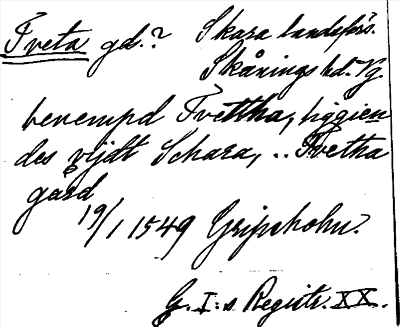 Tveta gd.? Skara landsförs.
Skånings hd. Vg.
benempd Tvettha, liggien
des vijdt Schara, .. Tvetha
gård
19/1 1549 Gripsholm.
G. I:s Registr. XX.